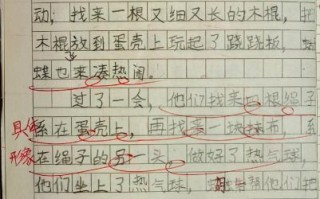 动，找来一根又细又长的木棍，把
木棍放到蛋壳上玩起了跷跷板，
蝶也来凑热闹。
过了一会，他们找来四根绳子
具体 系在蛋壳上，再找来一块抹布，系
形象 在绳子的另一头，做好了热气球，
他们坐上了热气球，帮他们把